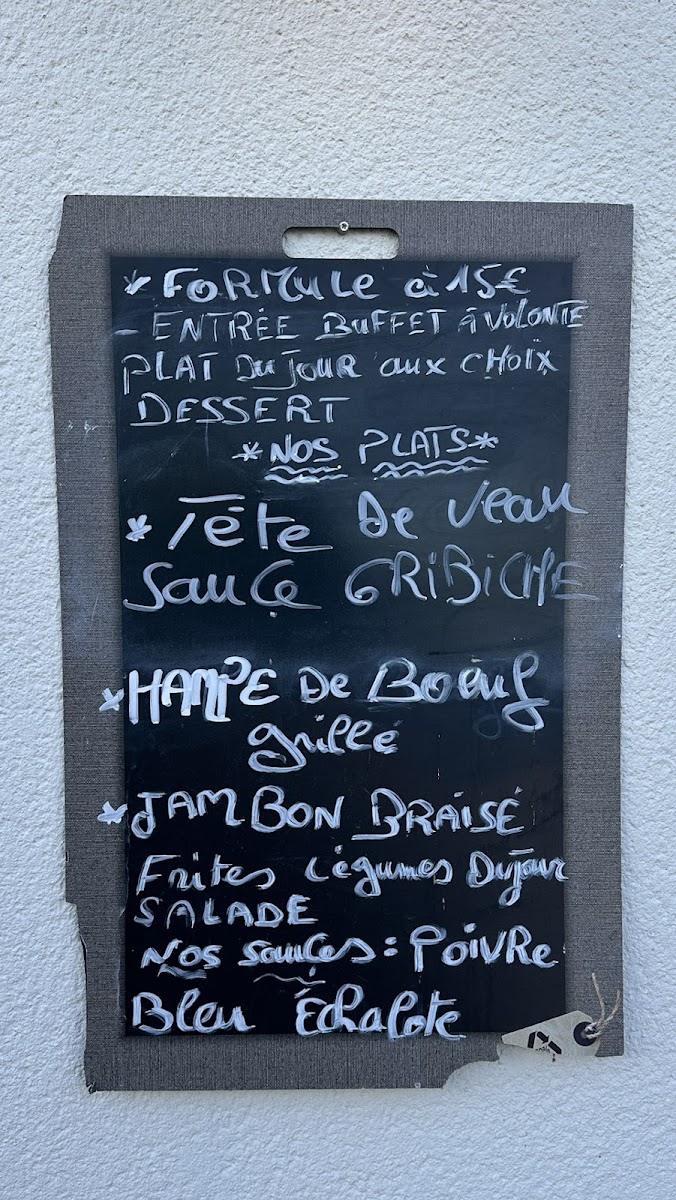 * FORMULE à 15€
- ENTRÉE BUFFET À VOLONTE
PLAT DU JOUR aux CHOÏX
DESSERT
*NOS PLATS*
* Tête De veau
sauce GRIBICHE
*HAMPE De Boeuf
grillé
*JAMBON BRAISÉ
Frites Légumes Du jour
SALADE
Nos sauces : Poivre
Bleu Échalote